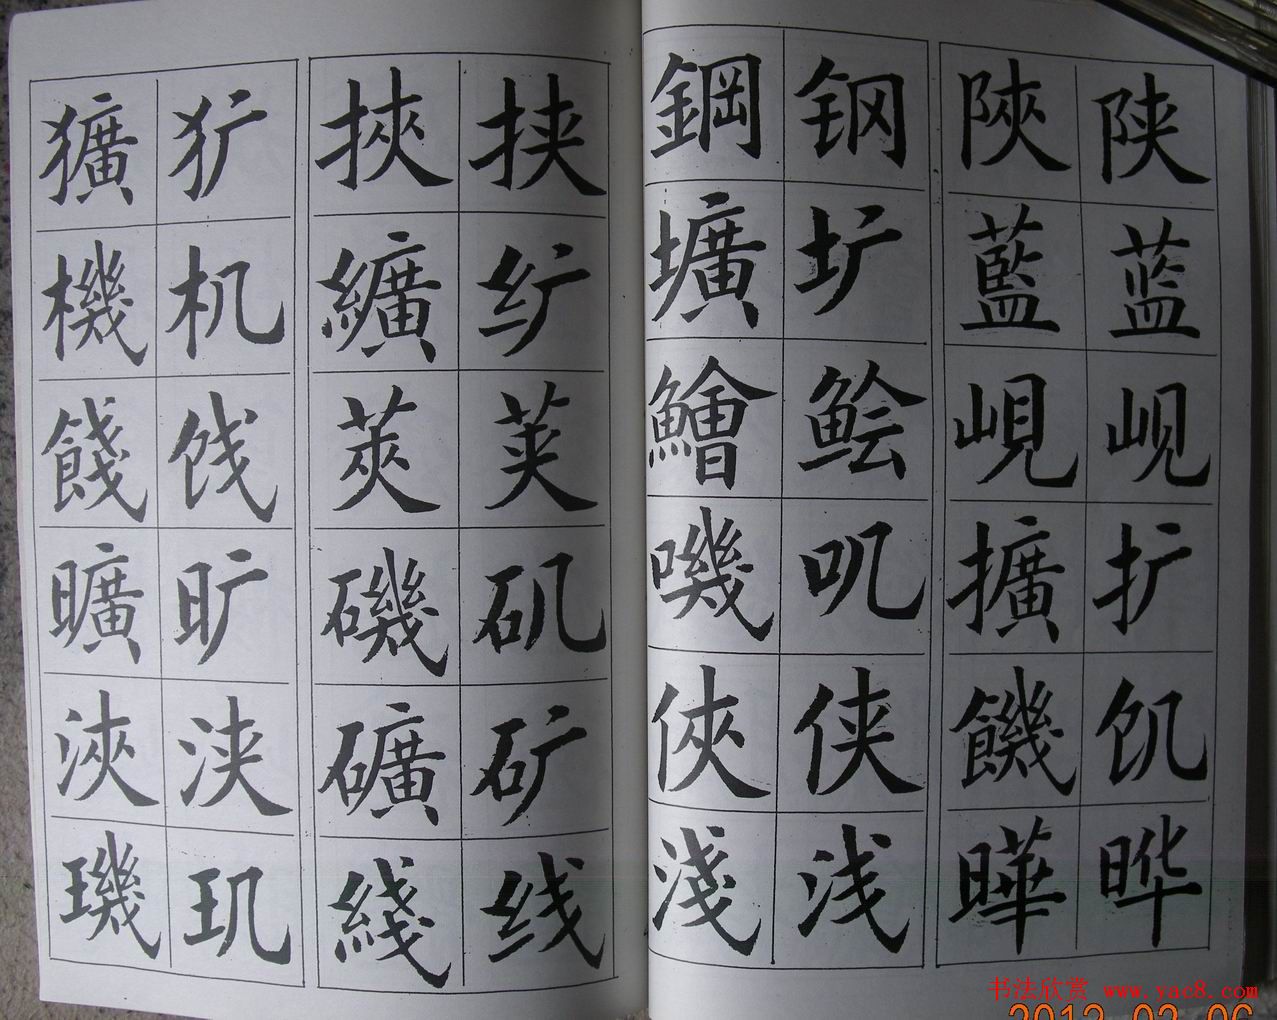 獷 犷 挾 挟 鋼 钢 陝 陕
機 机 纊 纩 壙 圹 藍 蓝
餞 饯 莢 荚 鱠 鲙 峴 岘
曠 旷 磯 矶 嘰 叽 擴 扩
浹 浃 礦 矿 俠 侠 饑 饥
璣 玑 綫 线 淺 浅 曄 晔
书法欣赏 www.yac8.com
2012 02 06